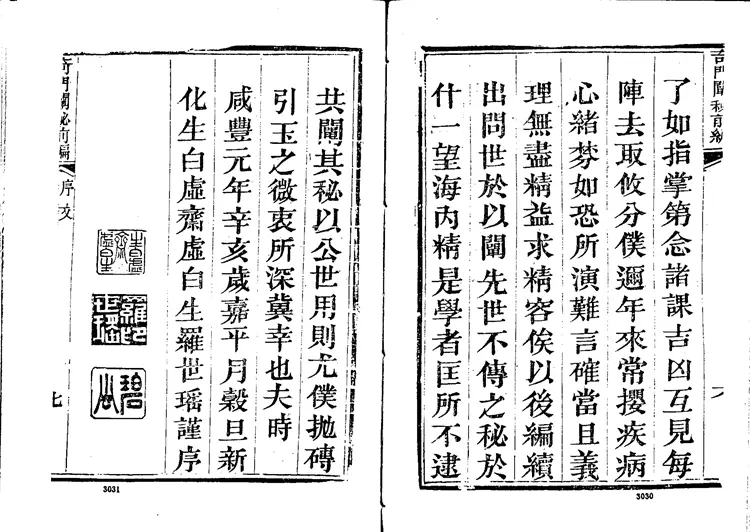 奇門闡秘前編
了如指掌第念諸課吉凶互見每
陣去取攸分僕邇年來常攖疾病
心緒棼如恐所演難言確當且義
理無盡精益求精容俟以後編續
出問世於以闡先世不傳之秘於
什一望海內精是學者匡所不逮
3030
共闡其秘以公世用則尤僕拋磚
引玉之微衷所深冀幸也夫時
咸豐元年辛亥歲嘉平月穀旦新
化生白虛齋虛白生羅世瑤謹序
奇門闡秘前編
序
七
3031